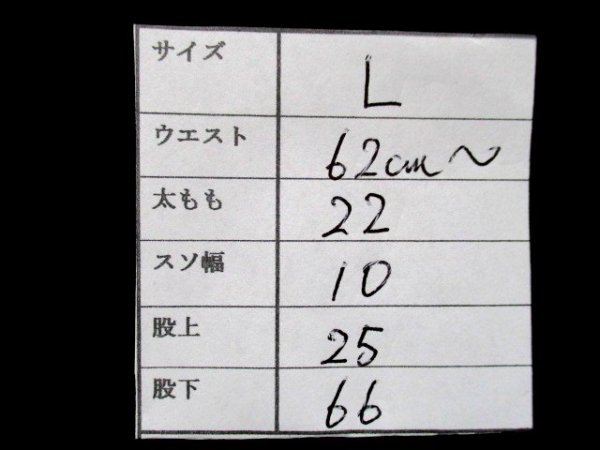 サイズ L
ウエスト 62cm〜
太もも 22
スソ幅 10
股上 25
股下 66